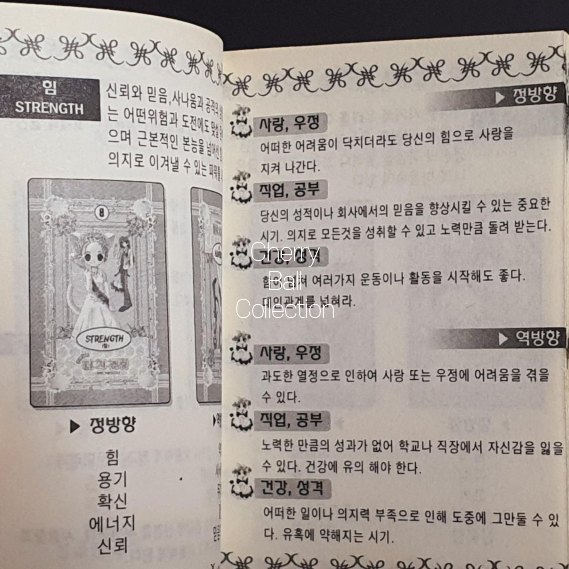 힘
STRENGTH
신뢰와 믿음, 사나움과
는 어떤위험과 도전에도
으며 근본적인 본능을
의지로 이겨낼 수 있는
8
STRENGTH
(힘)
▶ 정방향
힘
용기
확신
에너지
신뢰
▷ 정방향
사랑, 우정
어떠한 어려움이 닥치더라도 당신의 힘으로 사랑을
지켜 나간다.
직업, 공부
당신의 성적이나 회사에서의 믿음을 향상시킬 수 있는 중요한
시기. 의지로 모든것을 성취할 수 있고 노력만큼 돌려 받는다.
건강, 성격
힘이 넘쳐 여러가지 운동이나 활동을 시작해도 좋다.
대인관계를 넓혀라.
Cherry
Ball
Collection
▷ 역방향
사랑, 우정
과도한 열정으로 인하여 사랑 또는 우정에 어려움을 겪을
수 있다.
직업, 공부
노력한 만큼의 성과가 없어 학교나 직장에서 자신감을 잃을
수 있다. 건강에 유의 해야 한다.
건강, 성격
어떠한 일이나 의지력 부족으로 인해 도중에 그만둘 수 있
다. 유혹에 약해지는 시기.